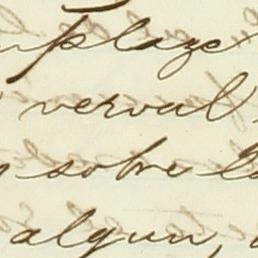 plaze
verval
sobre la
algun,